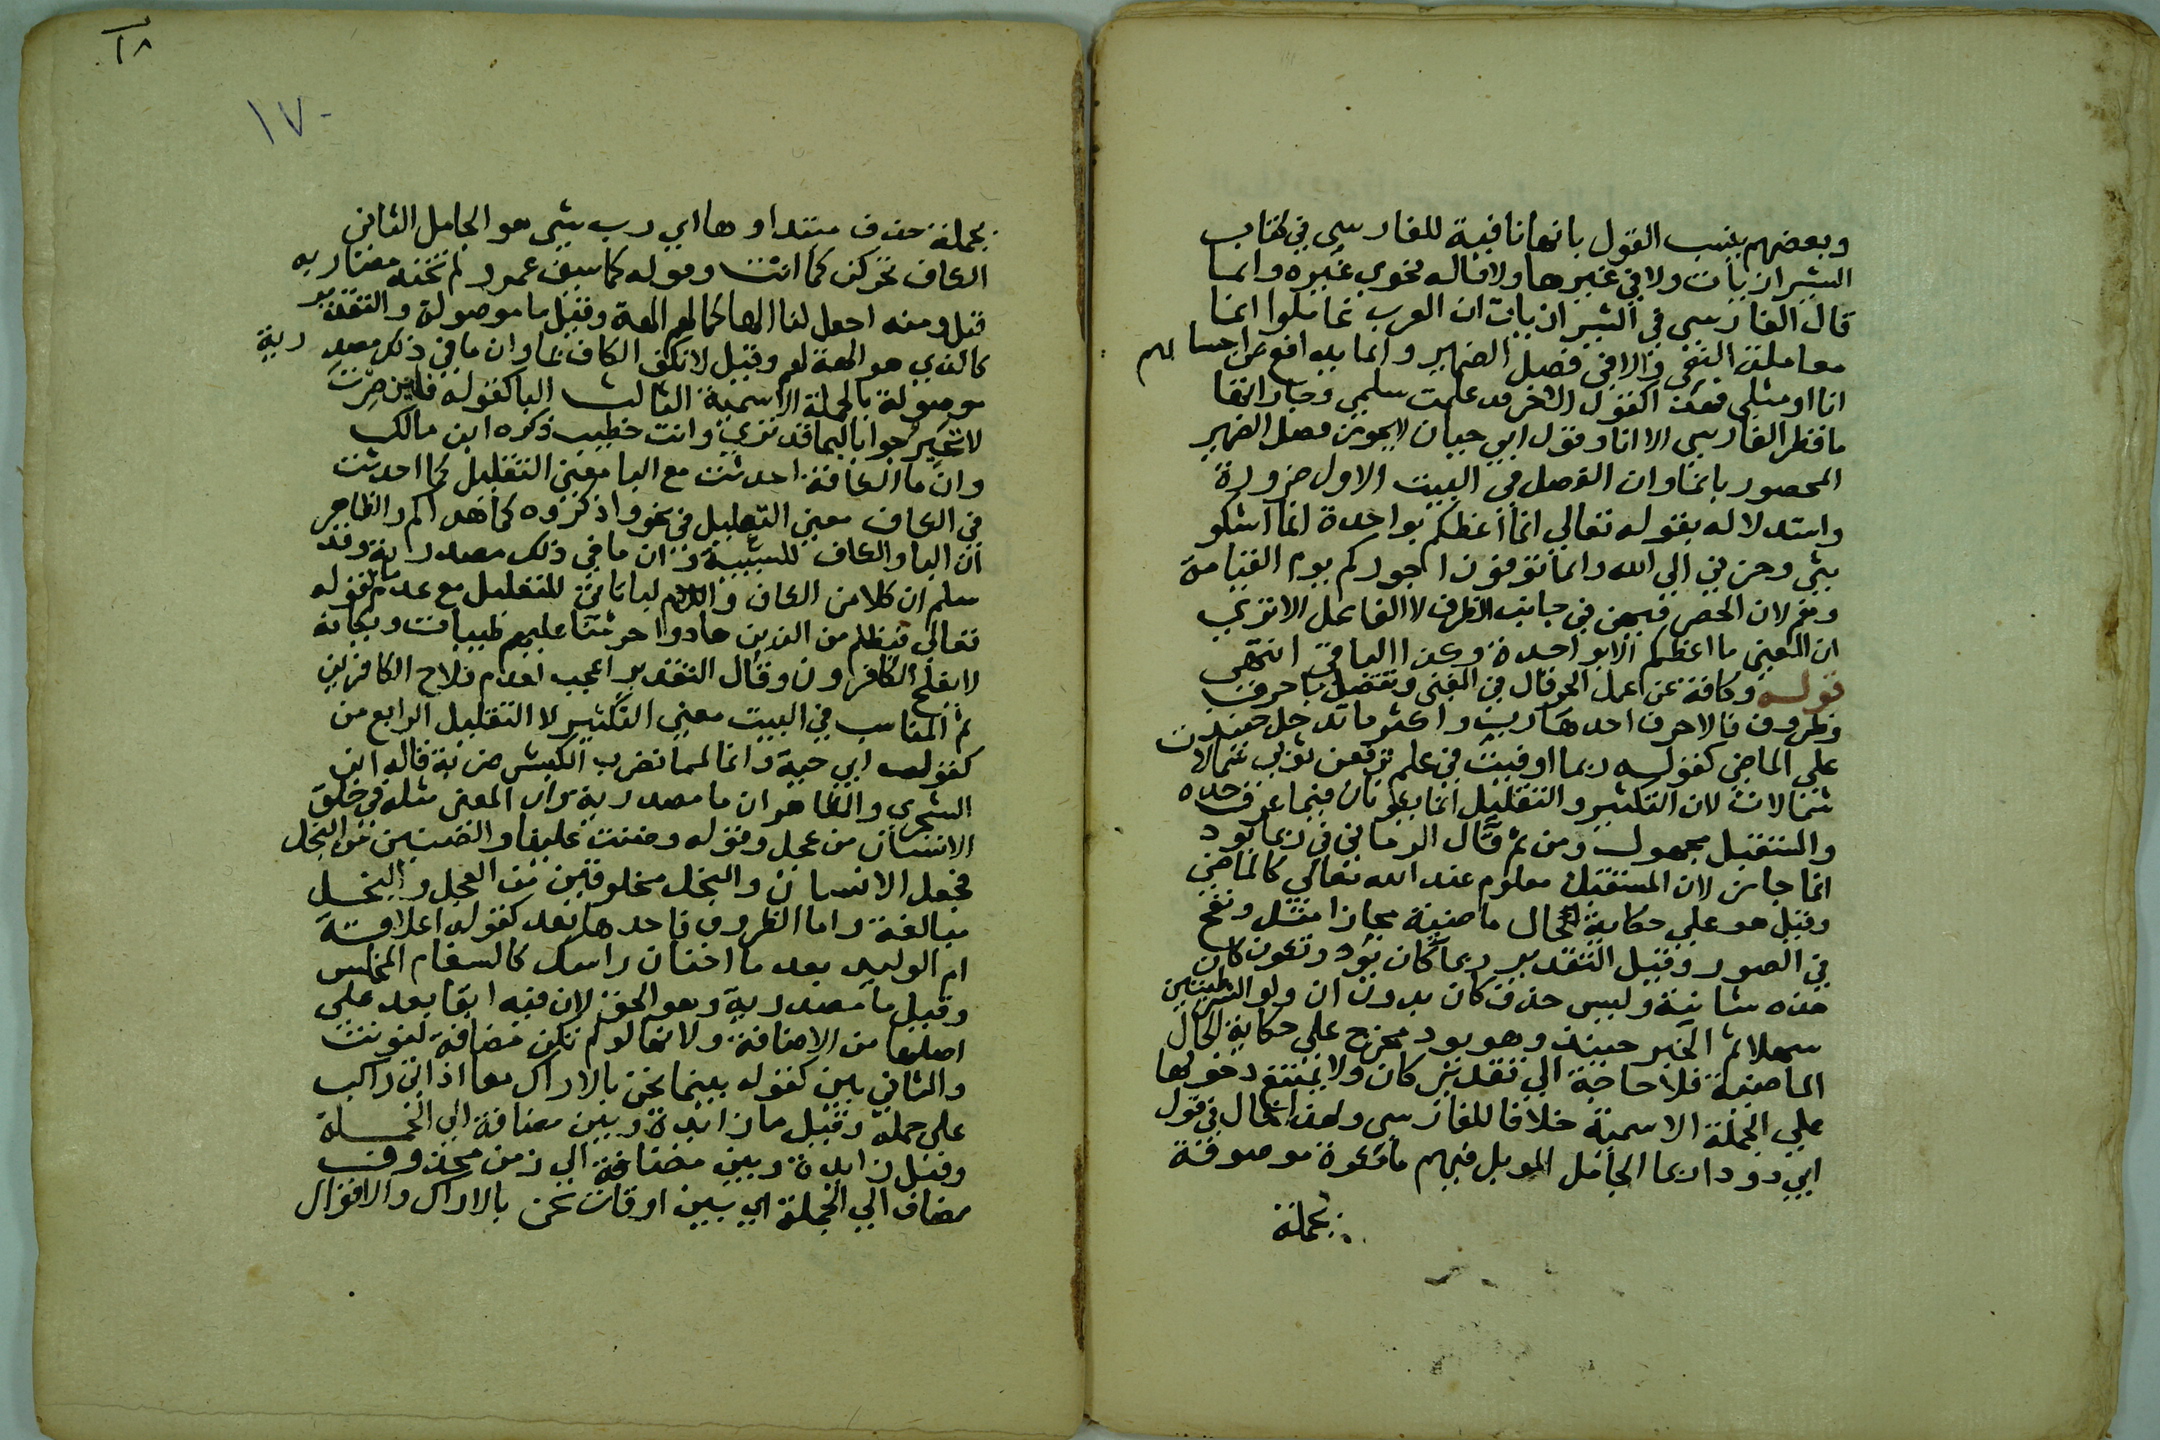 وبعضهم ينسب القول بانها نافية للفارسي في كتاب
الشيرازيات ولا في غيرها ولا قاله نحوي غيره وانما
قال الفارسي في الشيرازيات ان العرب عاملوا انما
معاملة النفي والا في فصل الضمير وانما يدافع عن احسابهم
انا او مثلي فهذا كقول الاخر قد علمت سلمي وجاراتها
ما قطر الفارسي الا انا وقول ابي حيان لا يجوز فصل الضمير
المحصور بانما وان الفصل في البيت الاول ضرورة
واستدلاله بقوله تعالي انما اعظكم بواحدة انما اشكو
بثي وحزني الي الله وانما توفون اجوركم يوم القيامة
وهم لان الحصر فيهن في جانب الظرف لا الفاعل الا تري
ان المعني ما اعظكم الا بواحدة وكذا الباقي انتهي
قوله وكافة عن عمل الجر قال في المغني وتتصل باحرف
وظروف فالاحرف احدها رب واكثر ما تدخل حينئذ
علي الماضي كقوله ربما اوفيت في علم ترفعن ثوبي شمالات
شمالات لان التكثير والتقليل انما يكونان فيما عرف حده
والمستقبل مجهول ومن ثم قال الرماني في ربما يود
انما جاز لان المستقبل معلوم عند الله تعالي كالماضي
وقيل هو علي حكاية الحال ماضية مجازا مثل ونفخ
في الصور وقيل التقدير ربما كان يود وتكون كان
هذه شانية وليس حذف كان بدون ان ولو الشرطيتين
سهلا ثم الخبر حينئذ وهو يود مخرج علي حكاية الحال
الماضية فلا حاجة الي تقدير كان ولا يمتنع دخولها
علي الجملة الاسمية خلافا للفارسي ولهذا قال في قول
ابي دوداد ربما الجامل الموبل فيهم ما نكرة موصوفة
بجملة
١٨
١٧٠
بجملة حذف مبتداوها اي رب شي هو الجامل الثاني
الكاف نحو كن كما انت وقوله كما سيف عمرو لم تخنه مضاربه
قيل ومنه اجعل لنا الها كما لهم الهة وقيل ما موصولة والتقدير
كالذي هو الهة لهم وقيل لا تكف الكاف بما وان ما في ذلك مصدرية
موصولة بالجملة الاسمية الثالث البا كقوله فلين صرت
لا تحير جوابا لبما قد تري وانت خطيب ذكره ابن مالك
وان ما الكافة احدثت مع البا معني التقليل كما احدثت
في الكاف معني التعليل في نحو واذكروه كما هداكم والظاهر
ان البا والكاف للسببية وان ما في ذلك مصدرية وقد
سلم ان كلا من الكاف واللام لياتي للتعليل مع عدم ما كقوله
تعالي فبظلم من الذين هادوا حرمنا عليهم طيبات ويكانه
لا يفلح الكافرون وقال التقدير اعجب لعدم فلاح الكافرين
ثم المناسب في البيت معني التكثير لا التقليل الرابع من
كقوله ابي حية وانا لمما نضرب الكبش ضربة قاله ابن
الشجري والظاهر ان ما مصدرية وان المعني مثله في خلق
الانسان من عجل وقوله وضنت علينا والضنين من البخل
فجعل الانسان والبخل مخلوقين من العجل والبخل
مبالغة واما الظروف فاحدها بعد كقوله اعلاقة
ام الوليد بعد ما افنان راسك كالسغام المخلس
وقيل ما مصدرية وهو الحق لان فيه ابقا بعد علي
اصلها من الاضافة ولانها لو لم تكن مضافة لنونت
والثاني بين كقوله بينما نحن بالاراك معا اذ اتي راكب
علي جملة وقيل ما زايدة وبين مضافة الي الجملة
وقيل زايدة وبين مضافة الي زمن محذوف
مضاف الي الجملة اي بين اوقات نحن بالاراك والاقوال